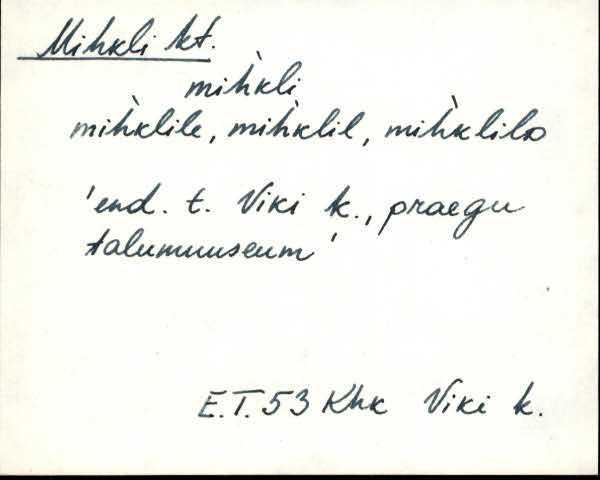 Mihkli kt.
mih̀kli
mih̀klile, mih̀klil, mih̀klilᴅ
'end. t. Viki k., praegu
talumuuseum'
E.T. 53 Khk Viki k.